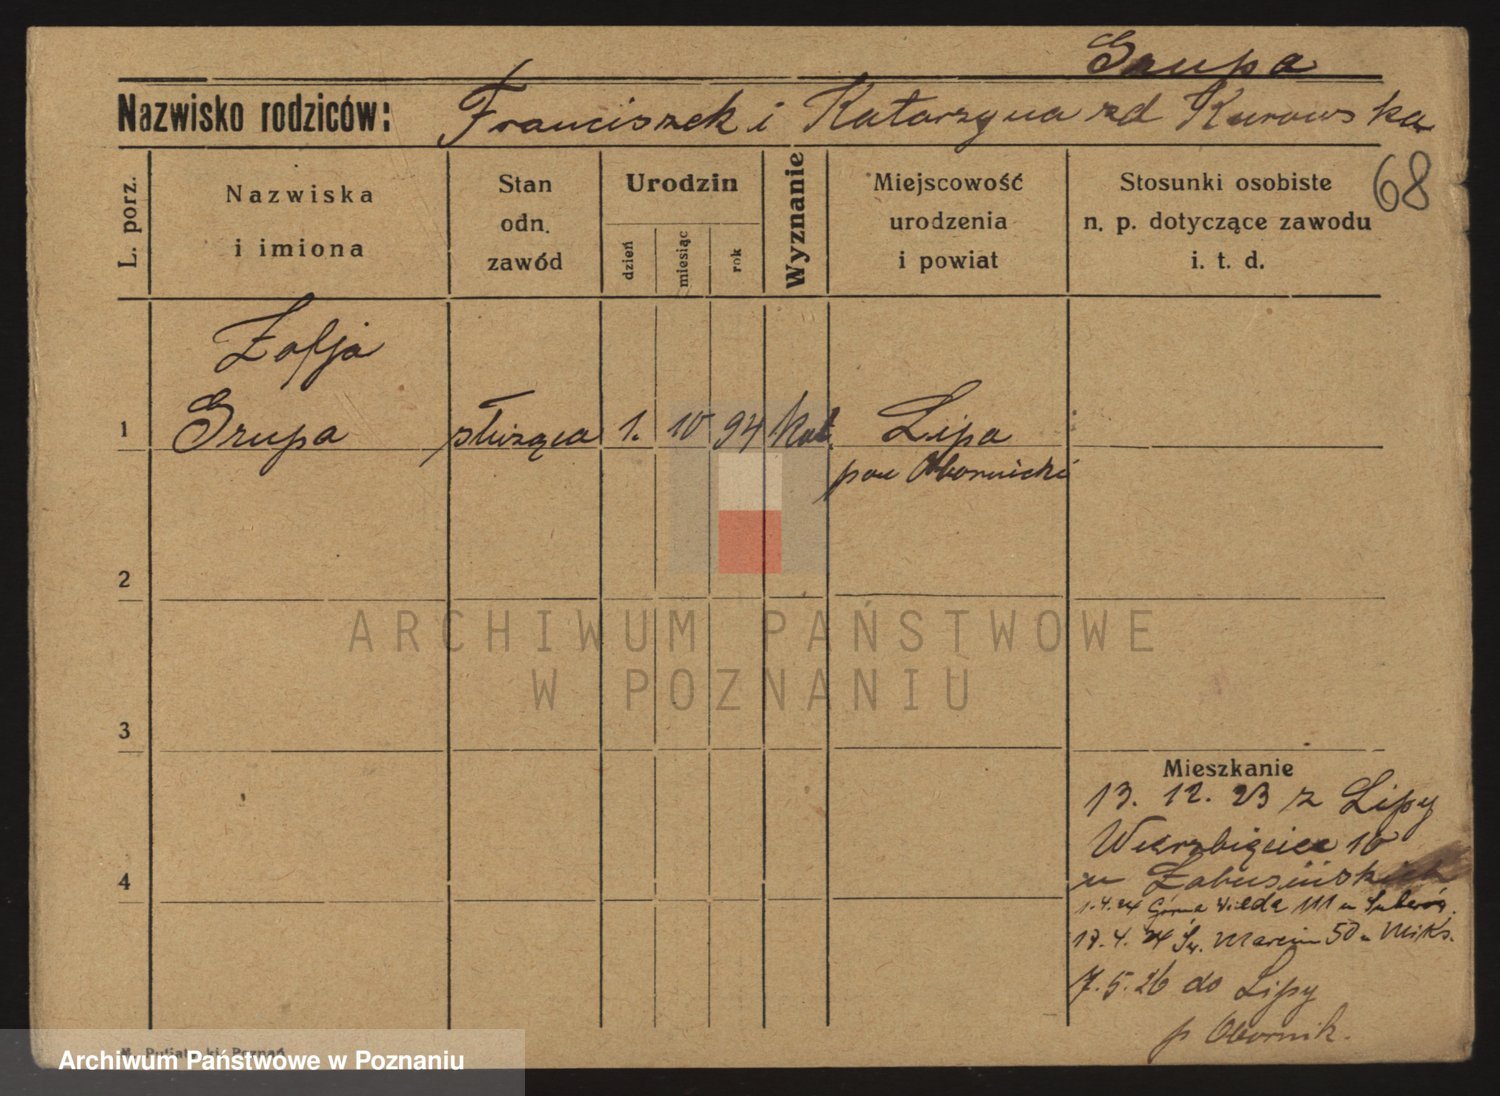 Grupa
Nazwisko rodziców: Franciszek i Katarzyna zd Kurowska
68
L. porz.
Nazwiska
i imiona
Stan
odn.
zawód
Urodzin
dzień
miesiąc
rok
Wyznanie
Miejscowość
urodzenia
i powiat
Stosunki osobiste
n. p. dotyczące zawodu
i. t. d.
Zofja
1 Grupa służąca 1. 10 94 kat. Lipa
pow Obornicki
2
ARCHIWUM PAŃSTWOWE
W POZNANIU
3
Mieszkanie
13. 12. 23 z Lipy
Wierzbięcice 10
4
u Zabusińskich
1.4.24 Górna Wilda 111 u
17.4.24 Św. Marcin 50 u Miks.
7.5.26 do Lipy
p Obornik.
Poznań
Archiwum Państwowe w Poznaniu